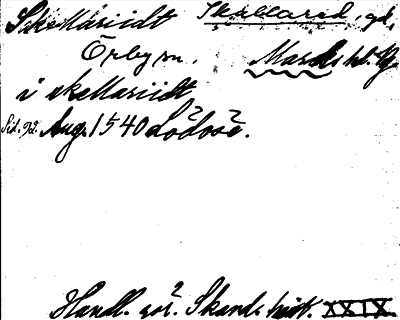 Skellariidt Skällared, gd,
Örby sn. Marks hd. Vg
i skellariidt
Sid. 92. Aug. 1540 Lödöse.
Handl. rör. Skand. hist. XXIX.